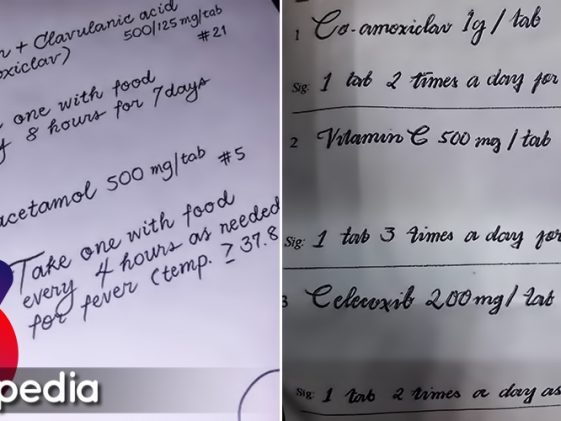 n + Clavulanic acid
500/125 mg/tab
oxiclav)
#21
one with food
y 8 hours for 7 days
acetamol 500 mg/tab #5
Take one with food
every 4 hours as needed
for fever (temp. ≥ 37.8
pedia
1 Co-amoxiclav 1g / tab
Sig: 1 tab 2 times a day for
2 Vitamin C 500 mg / tab
Sig: 1 tab 3 times a day for
3 Celecoxib 200 mg / tab
Sig: 1 tab 2 times a day as